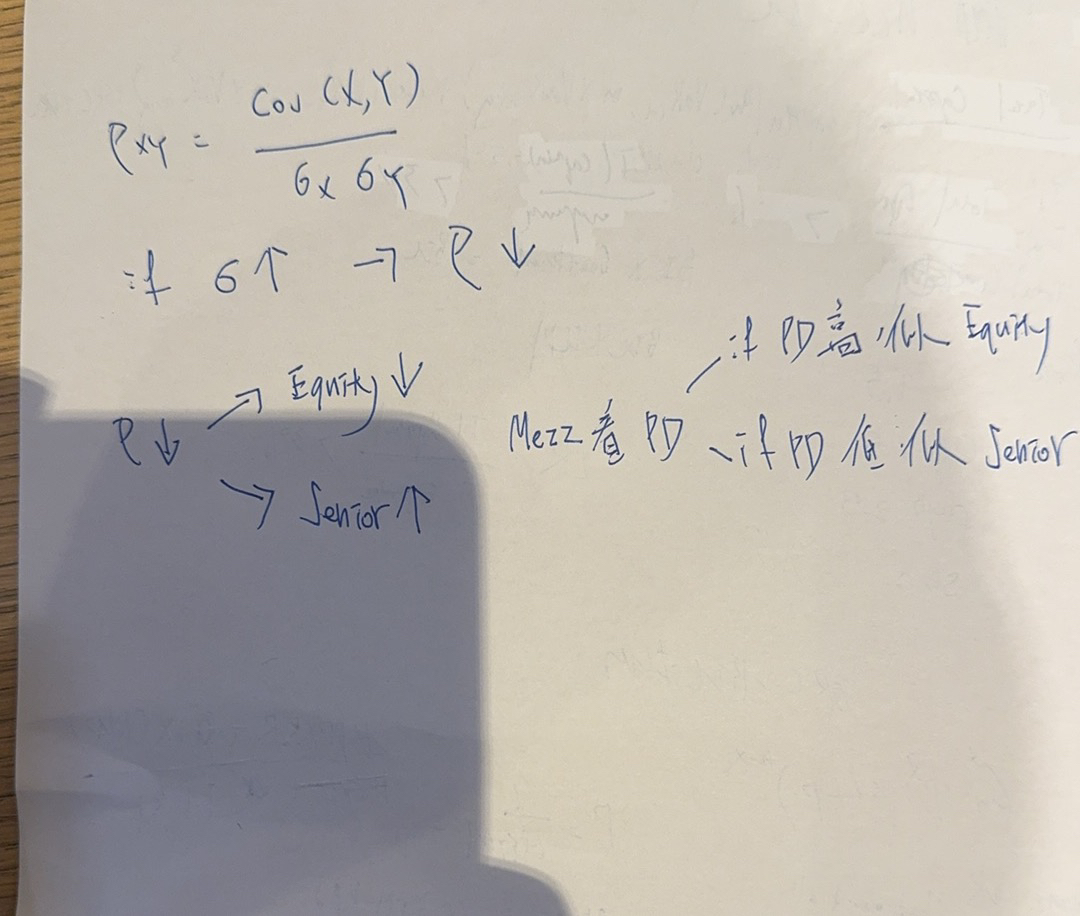 ρxy = Cov (X,Y) / σx σy
if σ↑ → ρ ↓
ρ↓ → Equity ↓
→ Senior ↑
Mezz 看 PD
if PD 高 似 Equity
if PD 低 似 Senior